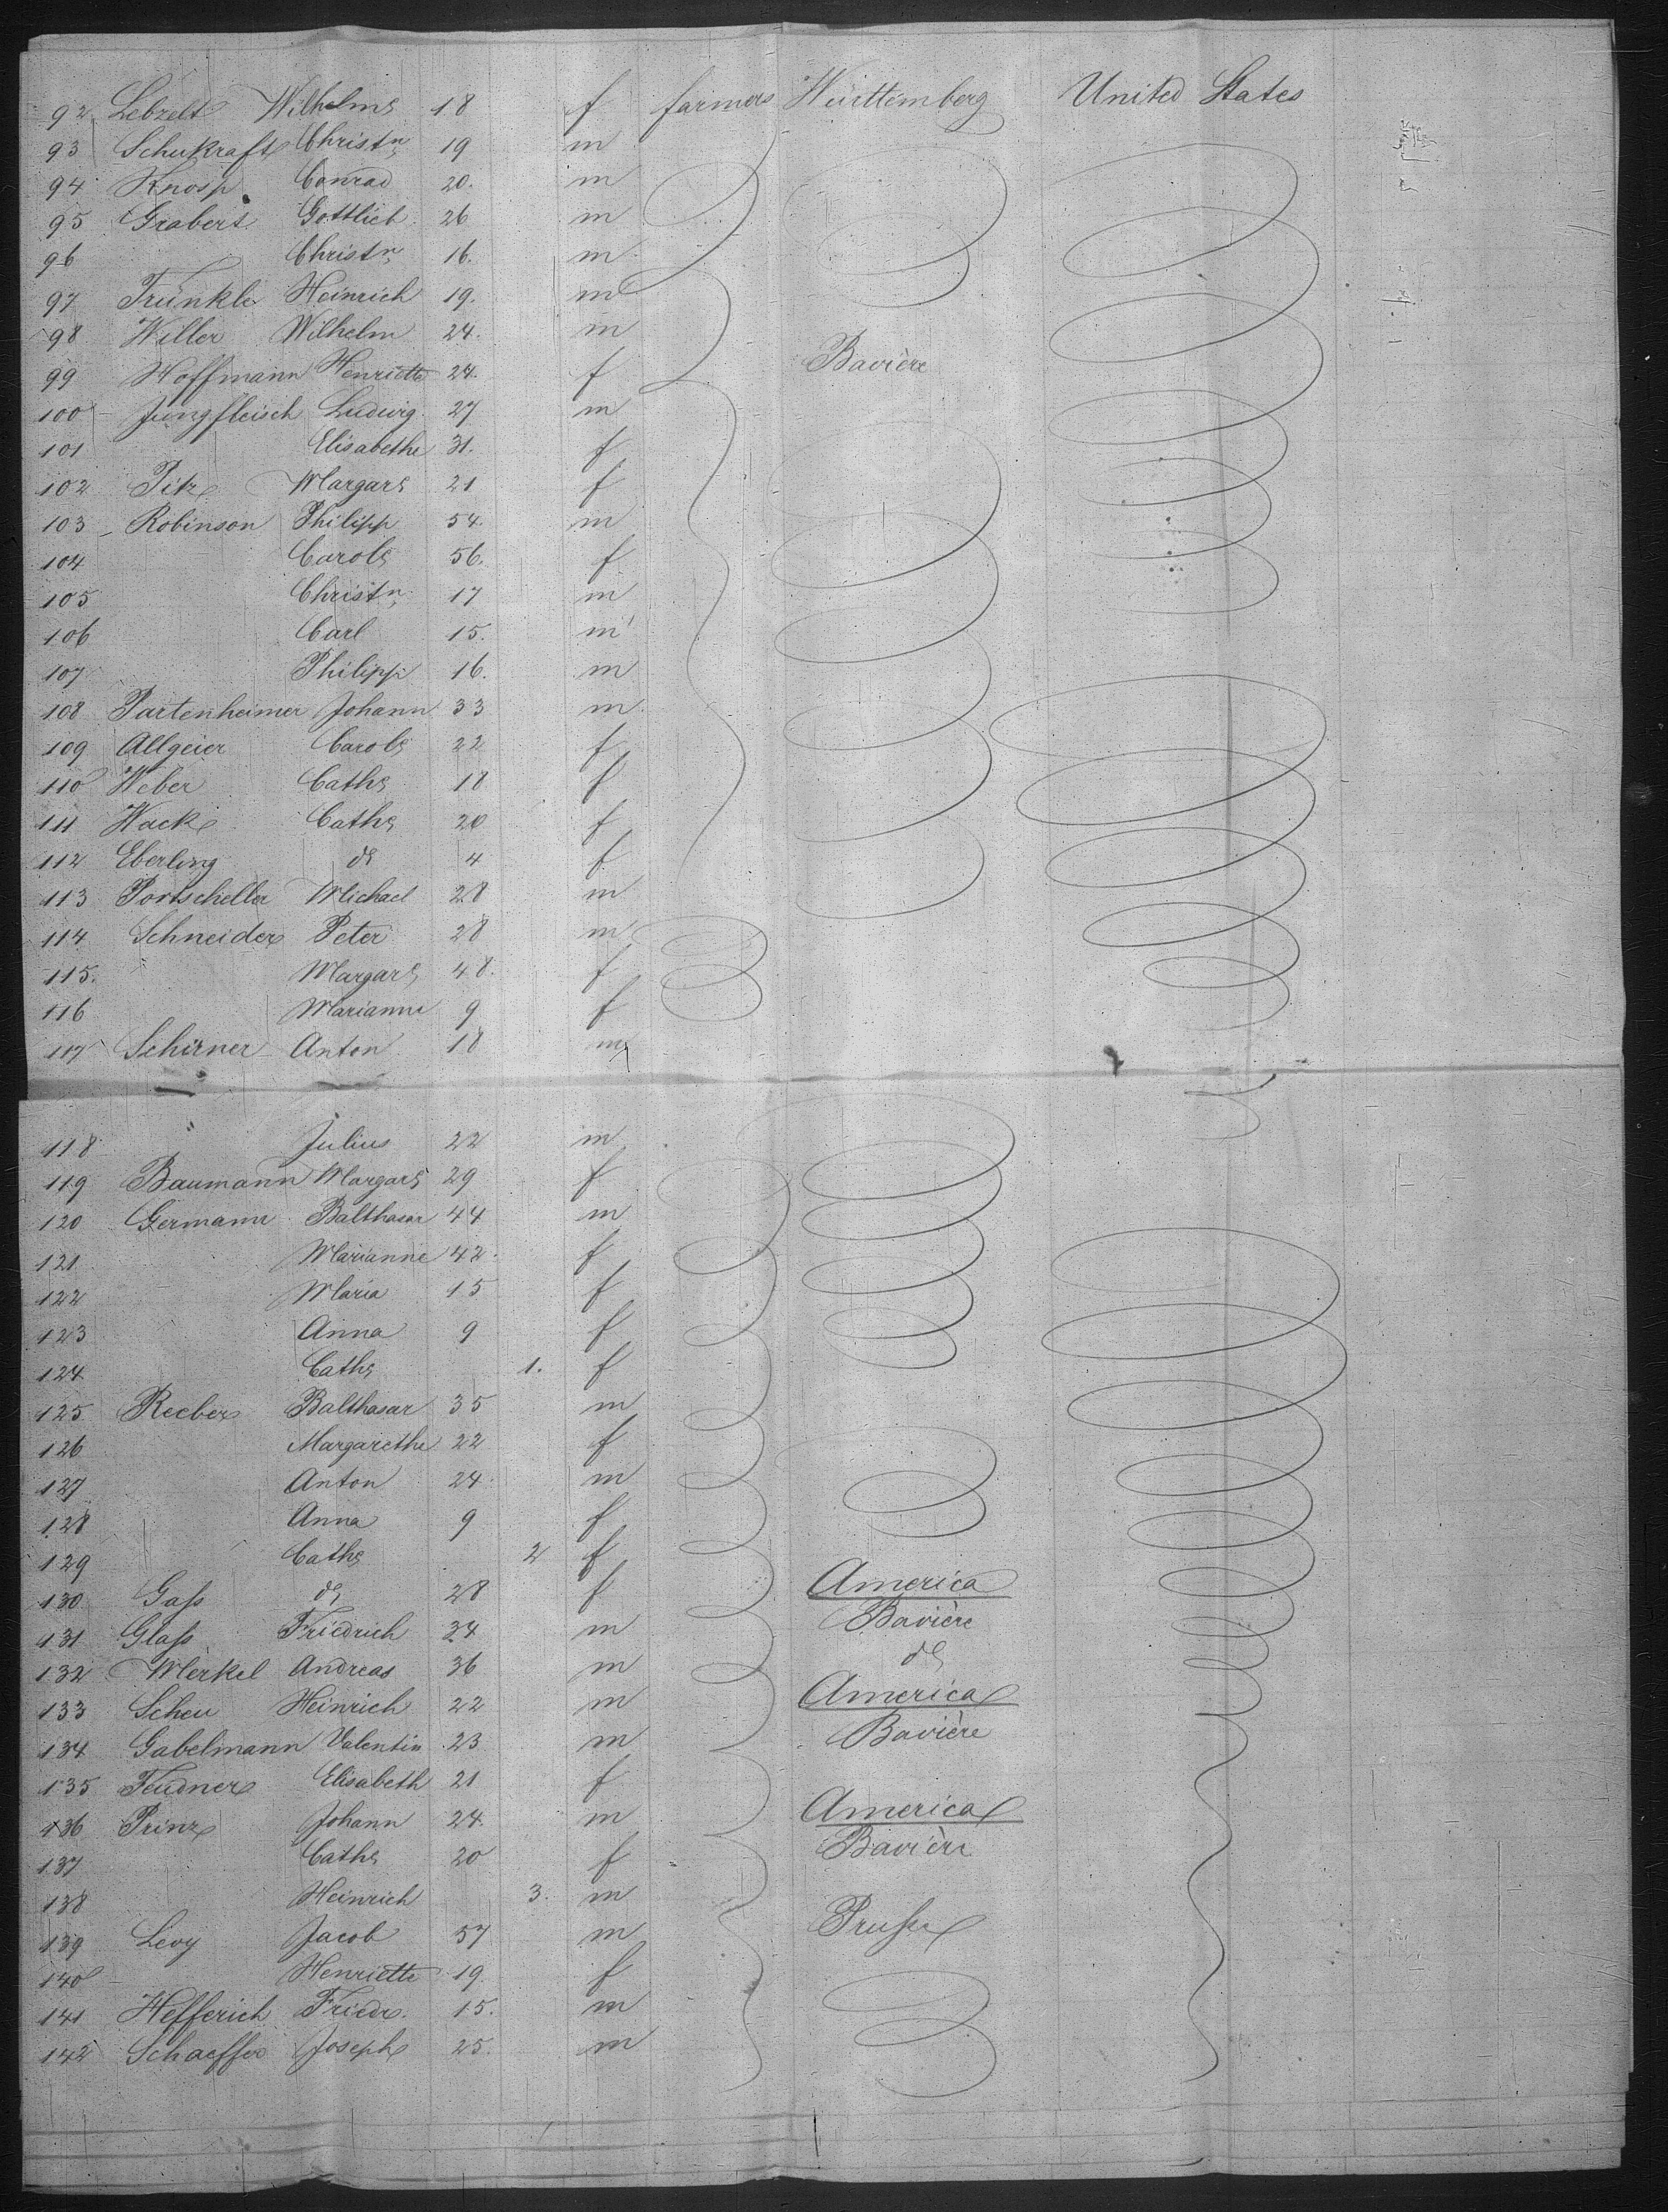 92 Lebzelt Wilhelme 18 f farmers Württemberg United States
93 Schukraft Christn 19 m
94 Knosp Conrad 20. m
95 Grabert Gottlieb 26 m
96 Christn 16. m
97 Trünkle Heinrich 19. m
98 Willer Wilhelm 24. m
99 Hoffmann Henriette 24. f Bavière
100 Jungfleisch Ludwig 27 m
101 Elisabethe 31. f
102 Margare 21 f
103 Robinson Philipp 54. m
104 Carole 56. f
105 Christn 17 m
106 Carl 15. m
107 Philipp 16. m
108 Partenheimer Johann 33 m
109 Allgeier Carole 22 f
110 Weber Cathe 18 f
111 Hack Cathe 20 f
112 Eberling do 4 f
113 Portscheller Michael 28 m
114 Schneider Peter 28 m
115. Margare 48. f
116 Marianne 9 f
117 Schirner Anton 18 m
118 Julius 22 m
119 Baumann Margare 29 f
120 Germann Balthasar 44 m
121 Marianne 42 f
122 Maria 15 f
123 Anna 9 f
124 Cathe 1. f
125 Reeber Balthasar 35 m
126 Margarethe 22 f
127 Anton 24 m
128 Anna 9 f
129 Cathe 2 f
130 Gass do 28 f America
131 Glass Friedrich 34 m Bavière
132 Merkel Andreas 36 m do
133 Scheu Heinrich 22 m America
134 Gabelmann Valentin 23 m Bavière
135 Elisabeth 21 f
136 Prinz Johann 24 m America
137 Cathe 20 f Bavière
138 Heinrich 3. m
139 Levy Jacob 57 m Prusse
140 Henriette 19 f
141 Hefferich Friedr. 15. m
142 Schaeffer Joseph 25. m